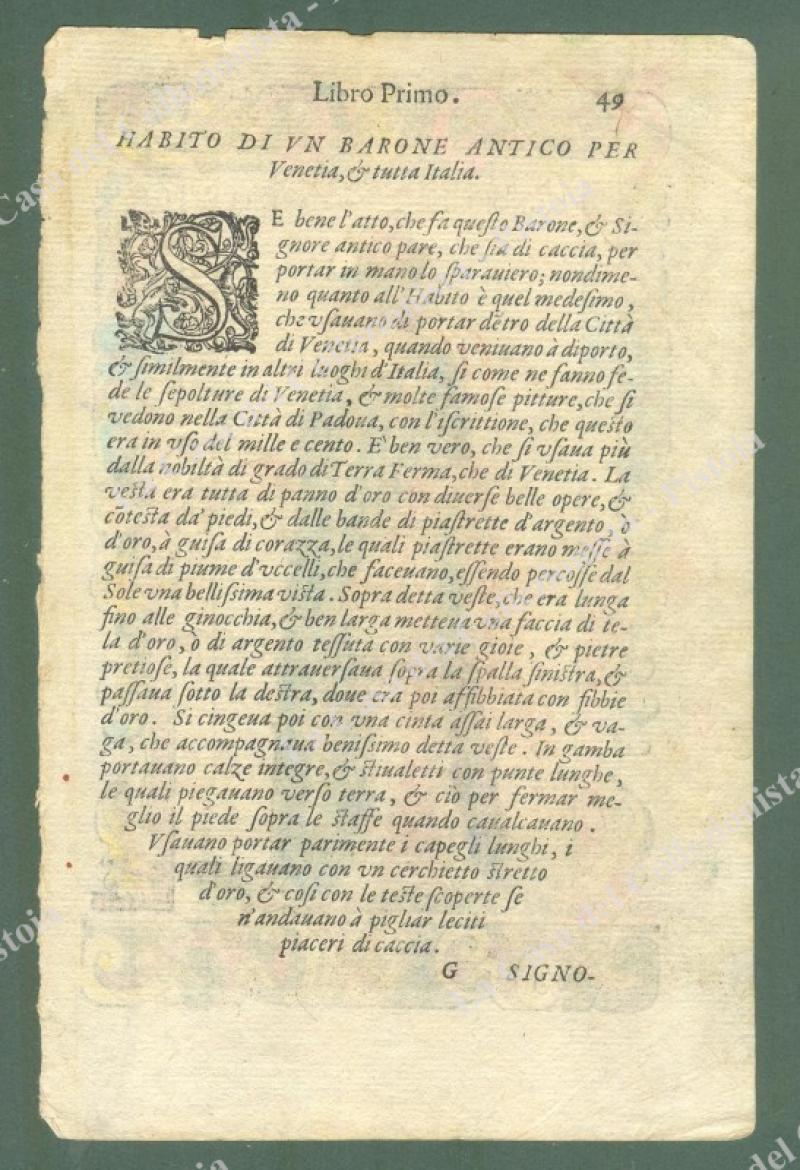 Libro Primo. 49
HABITO DI VN BARONE ANTICO PER
Venetia, & tutta Italia.
SE bene l'atto, che fa queſto Barone, & Si-
gnore antico pare, che ſia di caccia, per
portar in mano lo ſparauiero; nondime-
no quanto all'Habito è quel medeſimo,
che vſauano di portar dẽtro della Città
di Venetia, quando veniuano à diporto,
& ſimilmente in altri luoghi d'Italia, ſi come ne fanno fe-
de le ſepolture di Venetia, & molte famoſe pitture, che ſi
vedono nella Città di Padoua, con l'iſcrittione, che queſto
era in vſo del mille e cento. E' ben vero, che ſi vſaua più
dalla nobiltà di grado di Terra Ferma, che di Venetia. La
veſta era tutta di panno d'oro con diuerſe belle opere, &
cõteſta da' piedi, & dalle bande di piaſtrette d'argento, ò
d'oro, à guiſa di corazza, le quali piaſtrette erano meſſe à
guiſa di piume d'vccelli, che faceuano, eſſendo percoſſe dal
Sole vna belliſsima viſta. Sopra detta veſte, che era lunga
fino alle ginocchia, & ben larga metteua vna faccia di te-
la d'oro, ò di argento teſſuta con varie gioie, & pietre
pretioſe, la quale attrauerſaua ſopra la ſpalla ſiniſtra, &
paſſaua ſotto la deſtra, doue era poi affibbiata con fibbie
d'oro. Si cingeua poi con vna cinta aſſai larga, & va-
ga, che accompagnaua beniſsimo detta veſte. In gamba
portauano calze integre, & ſtiualetti con punte lunghe,
le quali piegauano verſo terra, & ciò per fermar me-
glio il piede ſopra le ſtaffe quando caualcauano.
Vſauano portar parimente i capegli lunghi, i
quali ligauano con vn cerchietto ſtretto
d'oro, & coſi con le teſte ſcoperte ſe
n'andauano à pigliar leciti
piaceri di caccia.
G SIGNO-